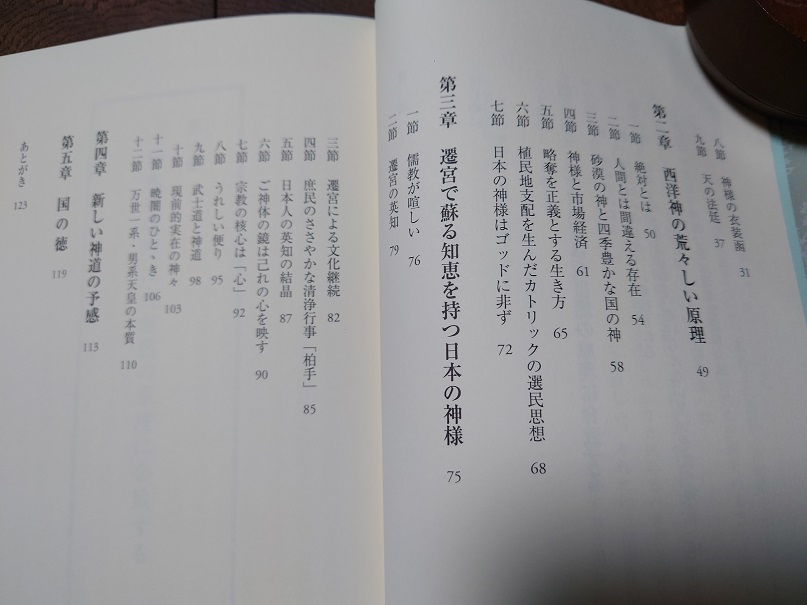 八節 神様の衣装画 31
九節 天の法廷 37
第二章 西洋神の荒々しい原理 49
一節 絶対とは 50
二節 人間とは間違える存在 54
三節 砂漠の神と四季豊かな国の神 58
四節 神様と市場経済 61
五節 略奪を正義とする生き方 65
六節 植民地支配を生んだカトリックの選民思想 68
七節 日本の神様はゴッドに非ず 72
第三章 遷宮で蘇る知恵を持つ日本の神様 75
一節 儒教が喧しい 76
二節 遷宮の英知 79
三節 遷宮による文化継続 82
四節 庶民のささやかな清浄行事「柏手」 85
五節 日本人の英知の結晶 87
六節 ご神体の鏡は己れの心を映す 90
七節 宗教の核心は「心」 92
八節 うれしい便り 95
九節 武士道と神道 98
十節 現前的実在の神々 103
十一節 暁闇のひとゝき 106
十二節 万世一系・男系天皇の本質 110
第四章 新しい神道の予感 113
第五章 国の徳 119
あとがき 123